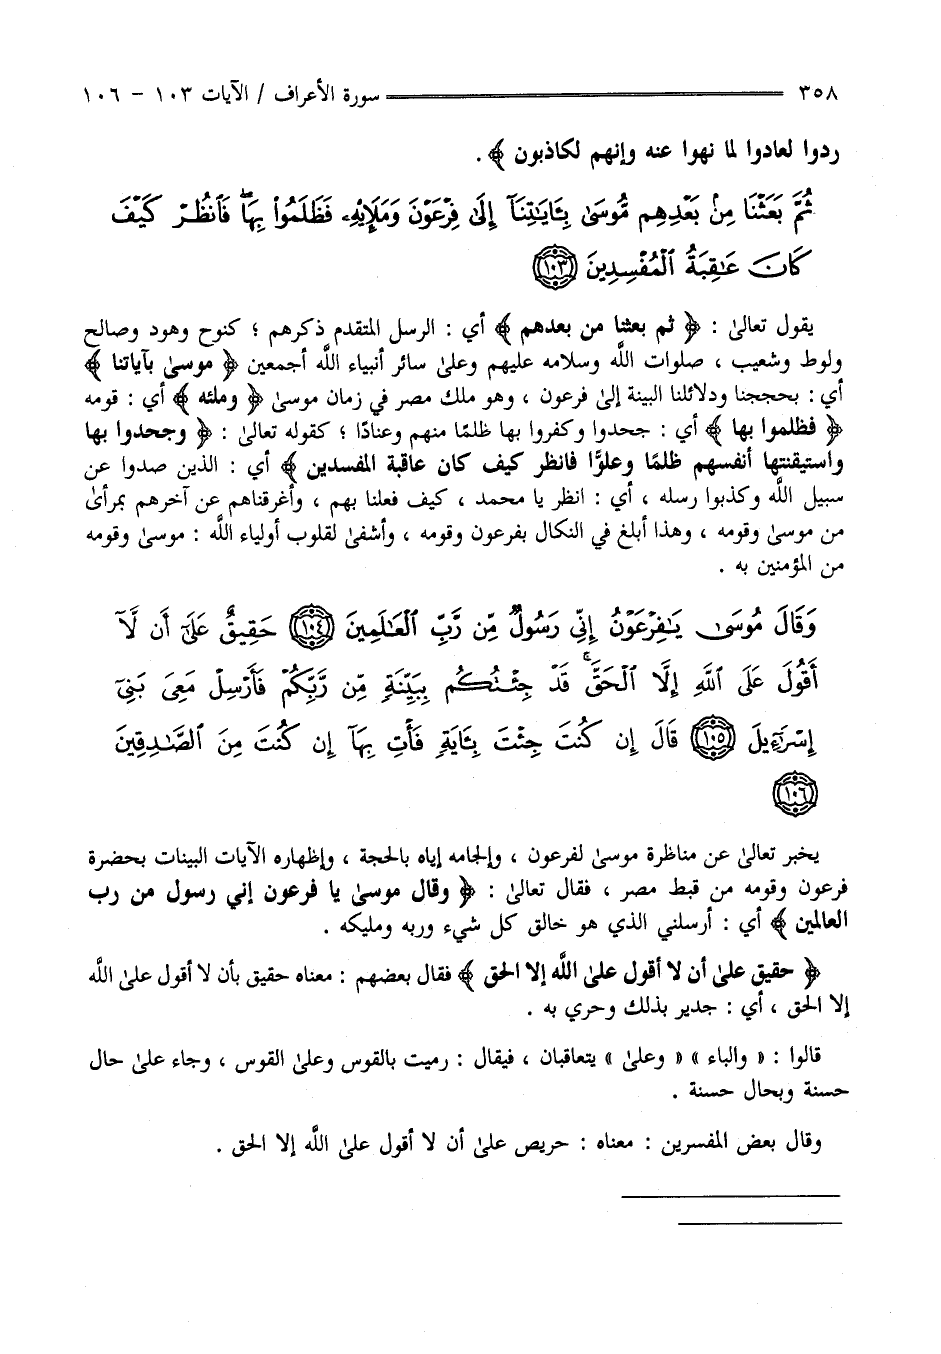 ٣٥٨ سورة الأعراف / الآيات ١٠٣ - ١٠٦
ردوا لعادوا لما نهوا عنه وإنهم لكاذبون ﴾ .
ثُمَّ بَعَثْنَا مِنْ بَعْدِهِم مُّوسَىٰ بِـَٔايَـٰتِنَآ إِلَىٰ فِرْعَوْنَ وَمَلَإِيْهِۦ فَظَلَمُوا۟ بِهَا ۖ فَٱنظُرْ كَيْفَ
كَانَ عَـٰقِبَةُ ٱلْمُفْسِدِينَ ١٠٣
يقول تعالىٰ : ﴿ ثم بعثنا من بعدهم ﴾ أي : الرسل المتقدم ذكرهم ؛ كنوح وهود وصالح
ولوط وشعيب ، صلوات اللَّه وسلامه عليهم وعلىٰ سائر أنبياء اللَّه أجمعين ﴿ موسىٰ بآياتنا ﴾
أي : بحججنا ودلائلنا البينة إلىٰ فرعون ، وهو ملك مصر في زمان موسىٰ ﴿ وملئه ﴾ أي : قومه
﴿ فظلموا بها ﴾ أي : جحدوا وكفروا بها ظلمًا منهم وعنادًا ؛ كقوله تعالىٰ : ﴿ وجحدوا بها
واستيقنتها أنفسهم ظلمًا وعلوًّا فانظر كيف كان عاقبة المفسدين ﴾ أي : الذين صدوا عن
سبيل اللَّه وكذبوا رسله ، أي : انظر يا محمد ، كيف فعلنا بهم ، وأغرقناهم عن آخرهم بمرأىٰ
من موسىٰ وقومه ، وهذا أبلغ في النكال بفرعون وقومه ، وأشفىٰ لقلوب أولياء اللَّه : موسىٰ وقومه
من المؤمنين به .
وَقَالَ مُوسَىٰ يَـٰفِرْعَوْنُ إِنِّى رَسُولٌ مِّن رَّبِّ ٱلْعَـٰلَمِينَ ١٠٤ حَقِيقٌ عَلَىٰٓ أَن لَّآ
أَقُولَ عَلَى ٱللَّهِ إِلَّا ٱلْحَقَّ ۚ قَدْ جِئْتُكُم بِبَيِّنَةٍ مِّن رَّبِّكُمْ فَأَرْسِلْ مَعِىَ بَنِىٓ
إِسْرَٰٓءِيلَ ١٠٥ قَالَ إِن كُنتَ جِئْتَ بِـَٔايَةٍ فَأْتِ بِهَآ إِن كُنتَ مِنَ ٱلصَّـٰدِقِينَ
١٠٦
يخبر تعالىٰ عن مناظرة موسىٰ لفرعون ، وإلجامه إياه بالحجة ، وإظهاره الآيات البينات بحضرة
فرعون وقومه من قبط مصر ، فقال تعالىٰ : ﴿ وقال موسىٰ يا فرعون إني رسول من رب
العالمين ﴾ أي : أرسلني الذي هو خالق كل شيء وربه ومليكه .
﴿ حقيق علىٰ أن لا أقول علىٰ اللَّه إلا الحق ﴾ فقال بعضهم : معناه حقيق بأن لا أقول علىٰ اللَّه
إلا الحق ، أي : جدير بذلك وحري به .
قالوا : « والباء » « وعلىٰ » يتعاقبان ، فيقال : رميت بالقوس وعلىٰ القوس ، وجاء علىٰ حال
حسنة وبحال حسنة .
وقال بعض المفسرين : معناه : حريص علىٰ أن لا أقول علىٰ اللَّه إلا الحق .